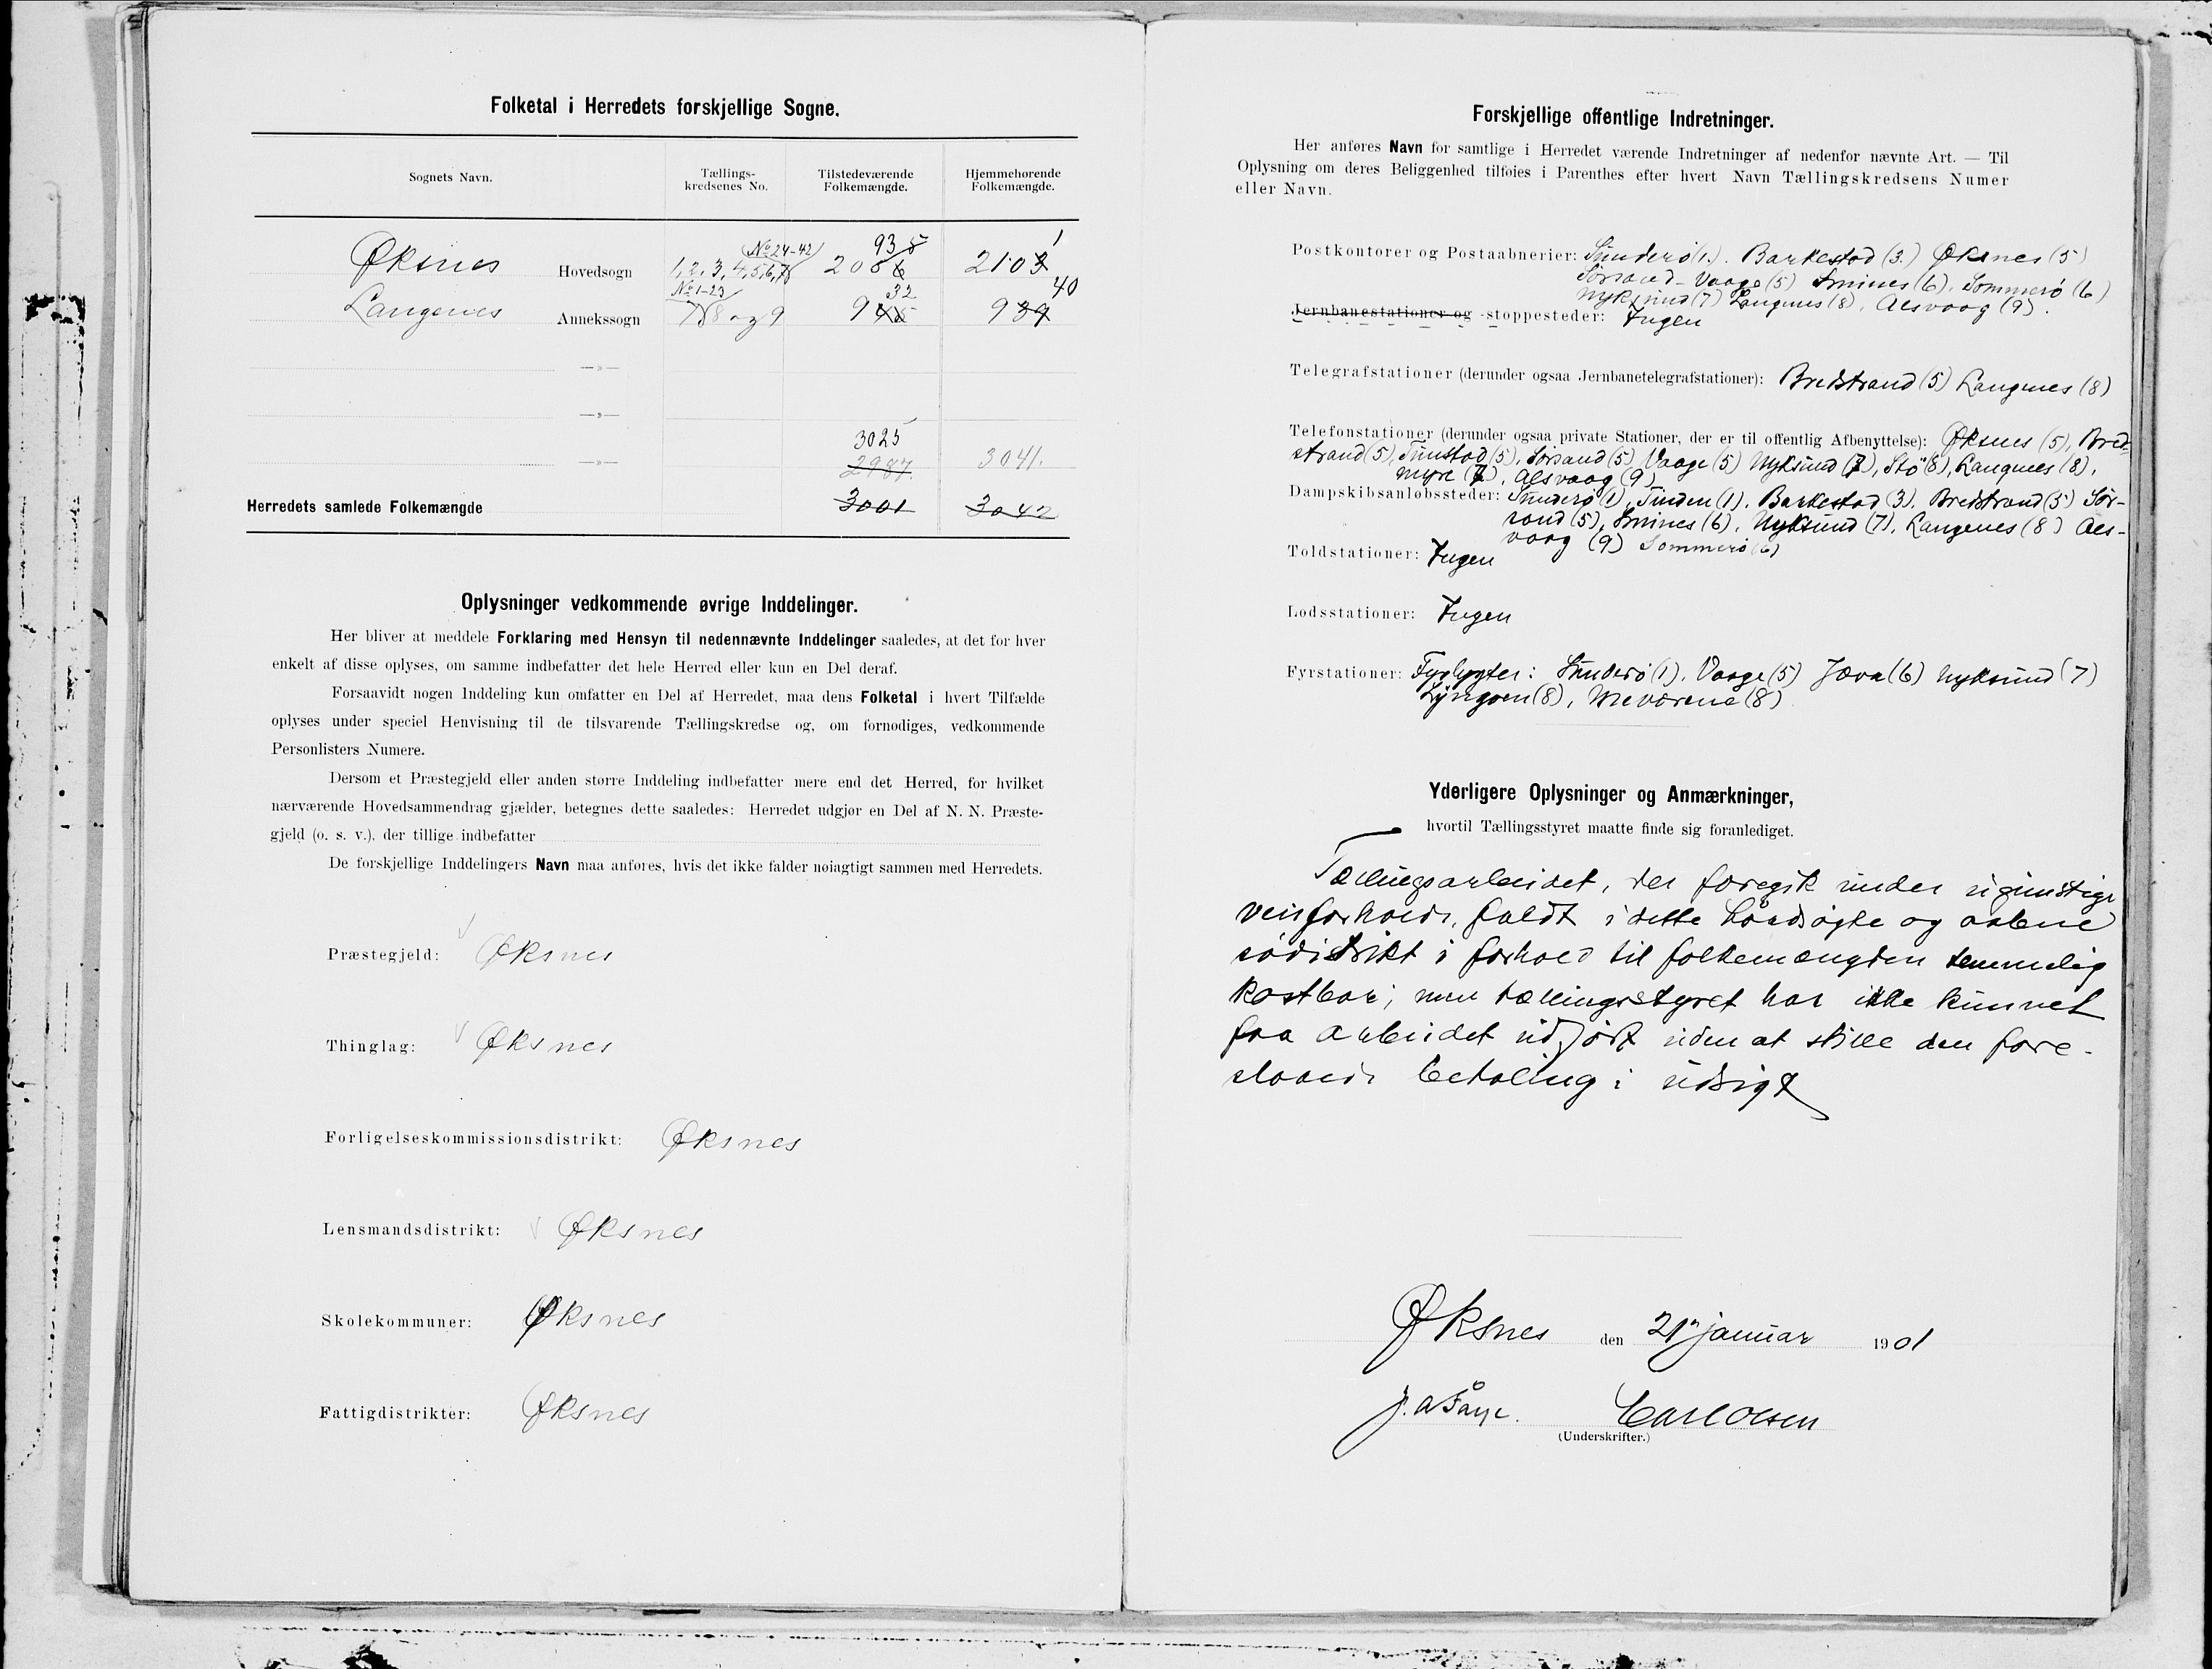 Folketal i Herredets forskjellige Sogne.
Sognets Navn.
Tællings-
kredsenes No.
Tilstedeværende
Folkemængde.
Hjemmehørende
Folkemængde.
No 24-42 93 1
Øksnes Hovedsogn 1, 2, 3, 4, 5, 6, 7 2103
No 1-23 32 40
Langenes Annekssogn 7, 8 og 9 939
—»—
—»—
3025
—»— 2987. 3041.
Herredets samlede Folkemængde 3001 3042
Oplysninger vedkommende øvrige Inddelinger.
Her bliver at meddele Forklaring med Hensyn til nedennævnte Inddelinger saaledes, at det for hver
enkelt af disse oplyses, om samme indbefatter det hele Herred eller kun en Del deraf.
Forsaavidt nogen Inddeling kun omfatter en Del af Herredet, maa dens Folketal i hvert Tilfælde
oplyses under speciel Henvisning til de tilsvarende Tællingskredse og, om fornødiges, vedkommende
Personlisters Numere.
Dersom et Præstegjeld eller anden større Inddeling indbefatter mere end det Herred, for hvilket
nærværende Hovedsammendrag gjælder, betegnes dette saaledes: Herredet udgjør en Del af N. N. Præste-
gjeld (o. s. v.), der tillige indbefatter
De forskjellige Inddelingers Navn maa anføres, hvis det ikke falder nøiagtigt sammen med Herredets.
Præstegjeld: Øksnes
Thinglag: Øksnes
Forligelseskommissionsdistrikt: Øksnes
Lensmandsdistrikt: Øksnes
Skolekommuner: Øksnes
Fattigdistrikter: Øksnes
Forskjellige offentlige Indretninger.
Her anføres Navn for samtlige i Herredet værende Indretninger af nedenfor nævnte Art. — Til
Oplysning om deres Beliggenhed tilføies i Parenthes efter hvert Navn Tællingskredsens Numer
eller Navn.
Postkontorer og Postaabnerier: Skinderö (1). Barkestad (3.) Øksnes (5)
Sörsand - Vaage (5) Smines (6). Sommerö (6)
Nyksund (7) Langenes (8), Alsvaag (9).
Jernbanestationer og -stoppesteder: Ingen
Telegrafstationer (derunder ogsaa Jernbanetelegrafstationer): Bredstrand (5) Langenes (8)
Telefonstationer (derunder ogsaa private Stationer, der er til offentlig Afbenyttelse): Øksnes (5), Bred-
strand (5), Tunstad (5), Sörsand (5) Vaage (5) Nyksund (7), Stö (8), Langenes (8),
Myre (7), Alsvaag (9)
Dampskibsanløbssteder: Skinderö (1), Tinden (1). Barkestad (3). Bredstrand (5) Sör-
sand (5), Smines (6). Nyksund (7), Langenes (8) Als-
vaag (9) Sommerö (6)
Toldstationer: Ingen
Lodsstationer: Ingen
Fyrstationer: Fyrlygter: Skinderö (1). Vaage (5) (6) Nyksund (7)
(8), (8)
Yderligere Oplysninger og Anmærkninger,
hvortil Tællingsstyret maatte finde sig foranlediget.
Tællingsarbeidet, der foregik under ugunstige
veirforholde, faldt i dette og aabne
södistrikt i forhold til folkemængden temmelig
kostbar; men tællingsstyret har ikke kunnet
faa arbeidet udfört uden at stille den fore-
slaaede betaling i udsigt
Øksnes den 21de januar 1901
J. A. Carl Olsen
(Underskrifter.)